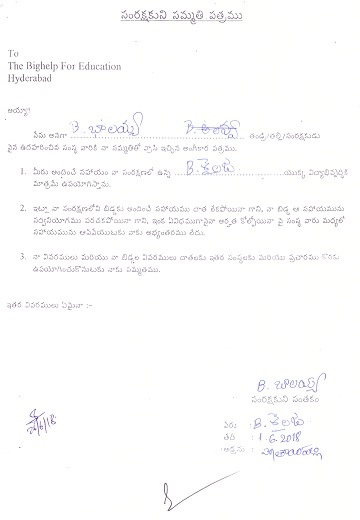 సంరక్షకుని సమ్మతి పత్రము
To
The Bighelp For Education
Hyderabad
అయ్యా!
B. బాలయ్య
నేను అనగా ........................ తండ్రి/తల్లి/సంరక్షకుడు
పైన ఉదహరించిన సంస్థ వారికి నా సమ్మతితో వ్రాసి ఇచ్చిన అంగీకార పత్రము.
1. మీరు అందించే సహాయం నా సంరక్షణలో ఉన్న B. శైలజ యొక్క విద్యాభివృద్ధికి
మాత్రమే ఉపయోగిస్తాను.
2. ఇట్లా నా సంరక్షణలోని బిడ్డకు అందించే సహాయము దాత లేకపోయినా గాని, నా బిడ్డ ఆ సహాయమును
సద్వినియోగము పరచకపోయినా గాని, ఇంక ఏవిధముగానైనా అర్హత కోల్పోయినా పై సంస్థ వారు మధ్యలో
సహాయమును ఆపివేయుటకు నాకు అభ్యంతరము లేదు.
3. నా వివరములు మరియు నా బిడ్డల వివరములు దాతలకు ఇతర సంస్థలకు మరియు ప్రచారము కొరకు
ఉపయోగించుకొనుటకు నాకు సమ్మతము.
ఇతర వివరములు ఏమైనా :-
B. బాలయ్య
సంరక్షకుని సంతకం
పేరు : B. శైలజ
తేది : 1.6.2018